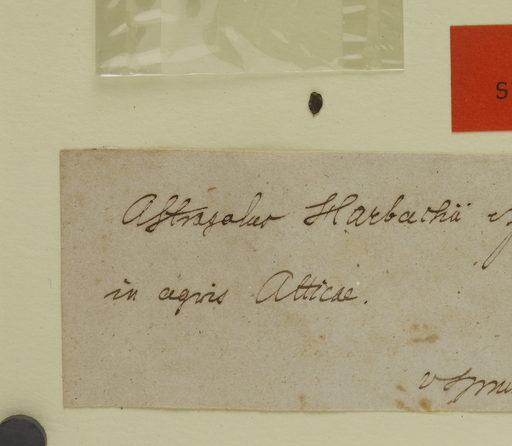 S
Astragalus Harbachii
in agris Atticae.